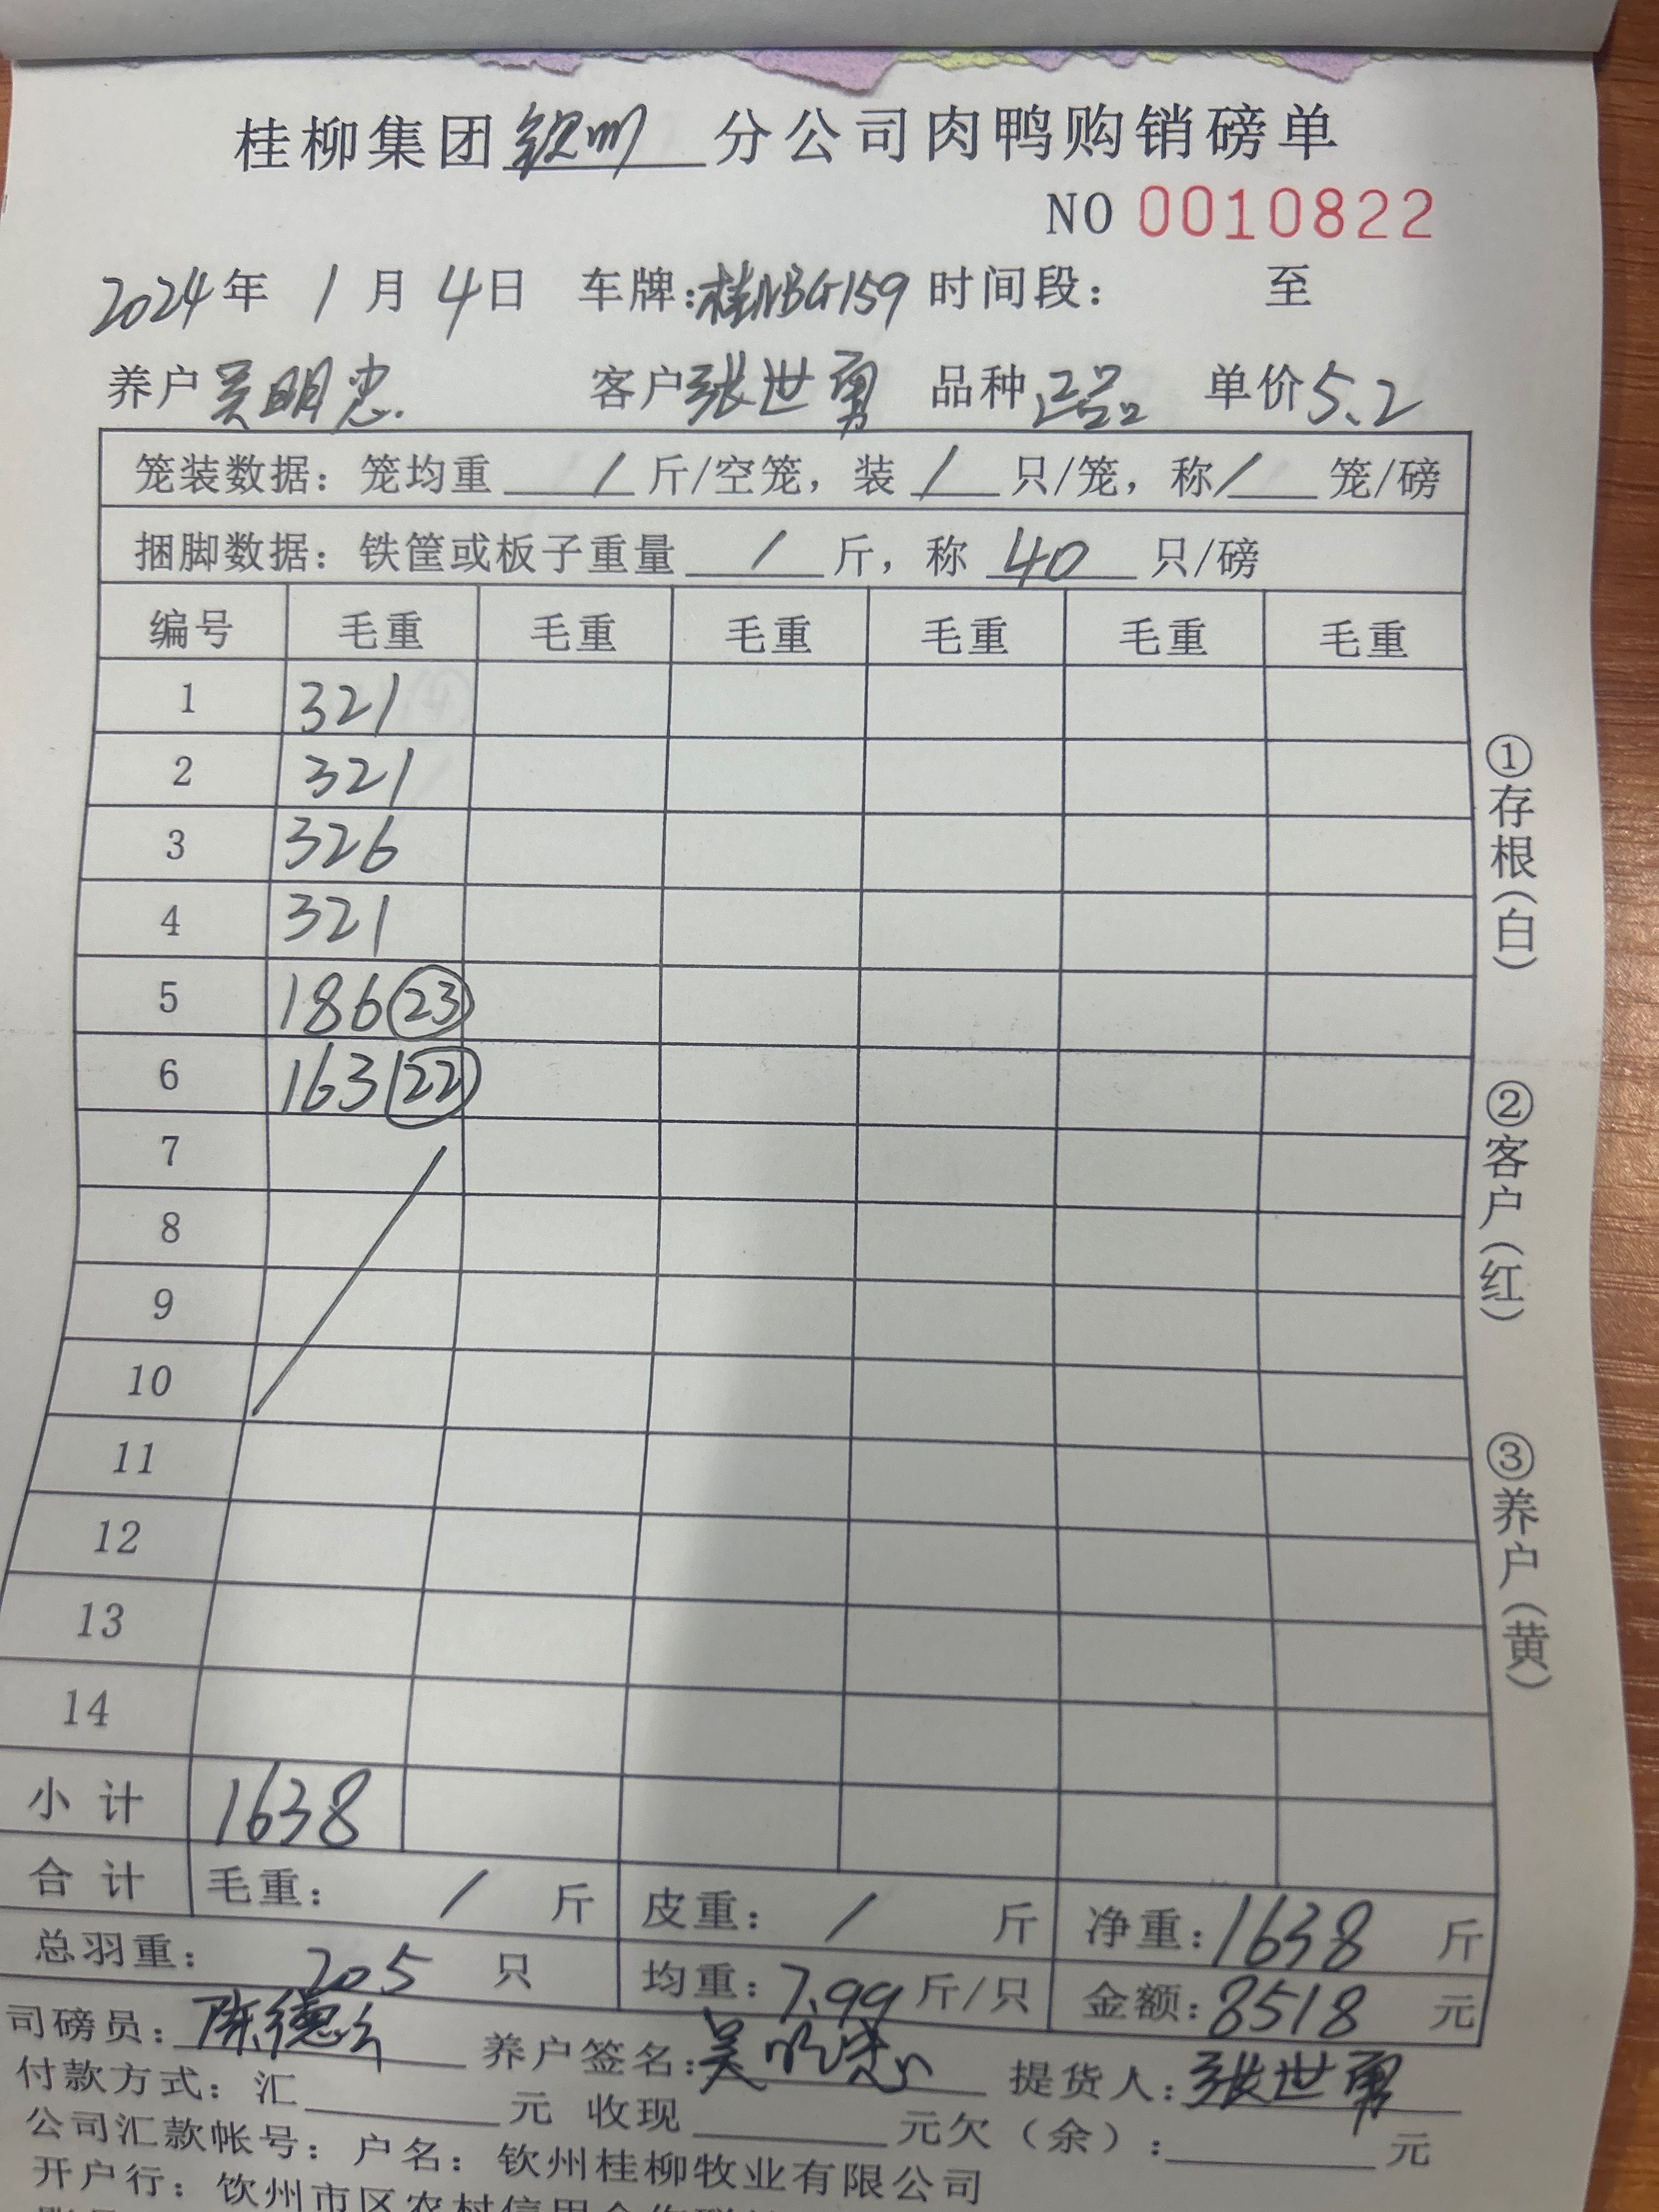 桂柳集团钦州分公司肉鸭购销磅单
NO 0010822
2024年 1月 4日 车牌:桂NBG159 时间段: 至
养户 吴明忠 客户 张世勇 品种 正品 单价 5.2
笼装数据: 笼均重 / 斤/空笼, 装 / 只/笼, 称 / 笼/磅
捆脚数据: 铁筐或板子重量 / 斤, 称 40 只/磅
编号 毛重 毛重 毛重 毛重 毛重 毛重
1 321
2 321
3 326
4 321
5 186 23
6 163 22
7
8
9
10
11
12
13
14
小计 1638
合计 毛重: / 斤 皮重: / 斤 净重: 1638 斤
总羽重: 205 只 均重: 7.99 斤/只 金额: 8518 元
司磅员: 陈德 养户签名: 吴明忠 提货人: 张世勇
付款方式: 汇 元 收现 元欠(余): 元
公司汇款帐号: 户名: 钦州桂柳牧业有限公司
开户行: 钦州市区农村信用合作联
①存根(白)
②客户(红)
③养户(黄)